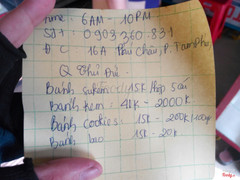 Time: 6AM - 10PM
SĐT: 0903 360 831
ĐC 16A Phú Châu, P. Tam Phú,
Q Thủ Đức
Bánh sukem: 15k hộp sấu
Bánh kem: 41k - 2000k
Bánh cookies: 15k - 200k/100g
Bánh bao 15k - 20k